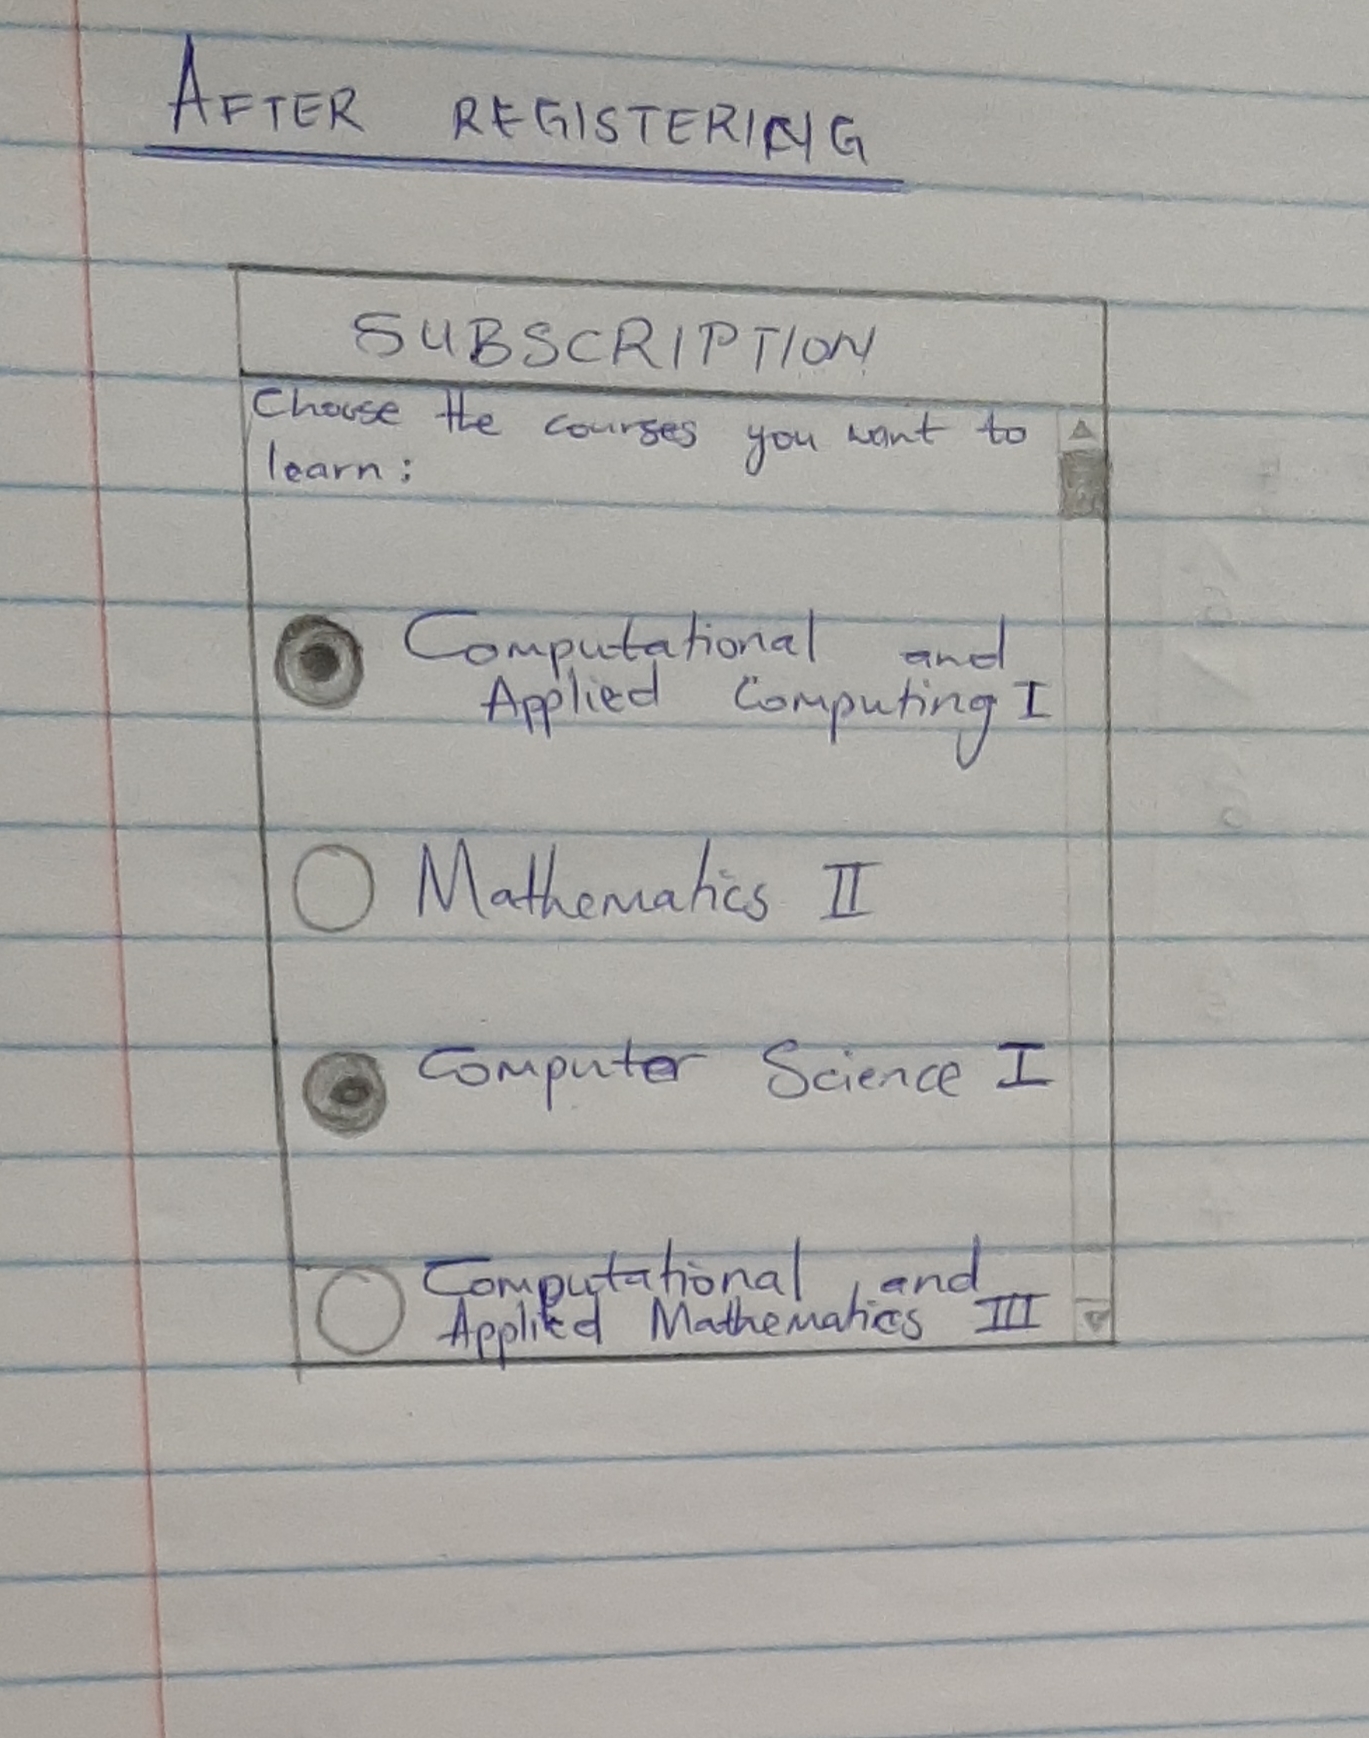 AFTER REGISTERING
SUBSCRIPTION
Choose the courses you want to
learn:
Computational and
Applied Computing I
Mathematics II
Computer Science I
Computational and
Applied Mathematics III